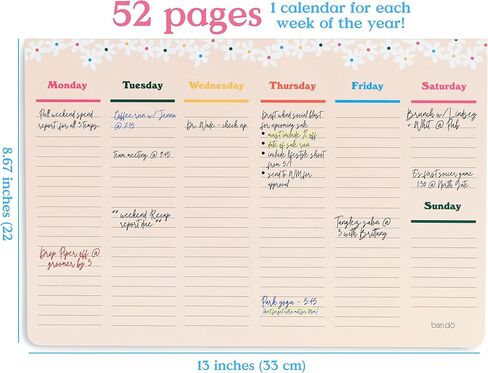 52 pages
1 calendar for each
week of the year!
Monday
Pull weekend spend
report for all 3 temps.
Drop Piper off @
groomer by 3
Tuesday
Coffee run w/ Jenna
@ 2:45
Team meeting @ 9:45
** weekend Recap
report due **
Wednesday
Dr. Wade - check up
Thursday
Draft wknd social blast
for upcoming sale
• must include % off
• date of sale run
• include lifestyle shoot
from 5/1
• send to WM for
approval
Park yoga - 5:45
Friday
Tangles salon @
3 with Brittany
Saturday
Brunch w/ Lindsey
+ Whit @ Hub
E's first soccer game
1:30 @ North Gate
Sunday
ban.dō
8.67 inches (22
13 inches (33 cm)